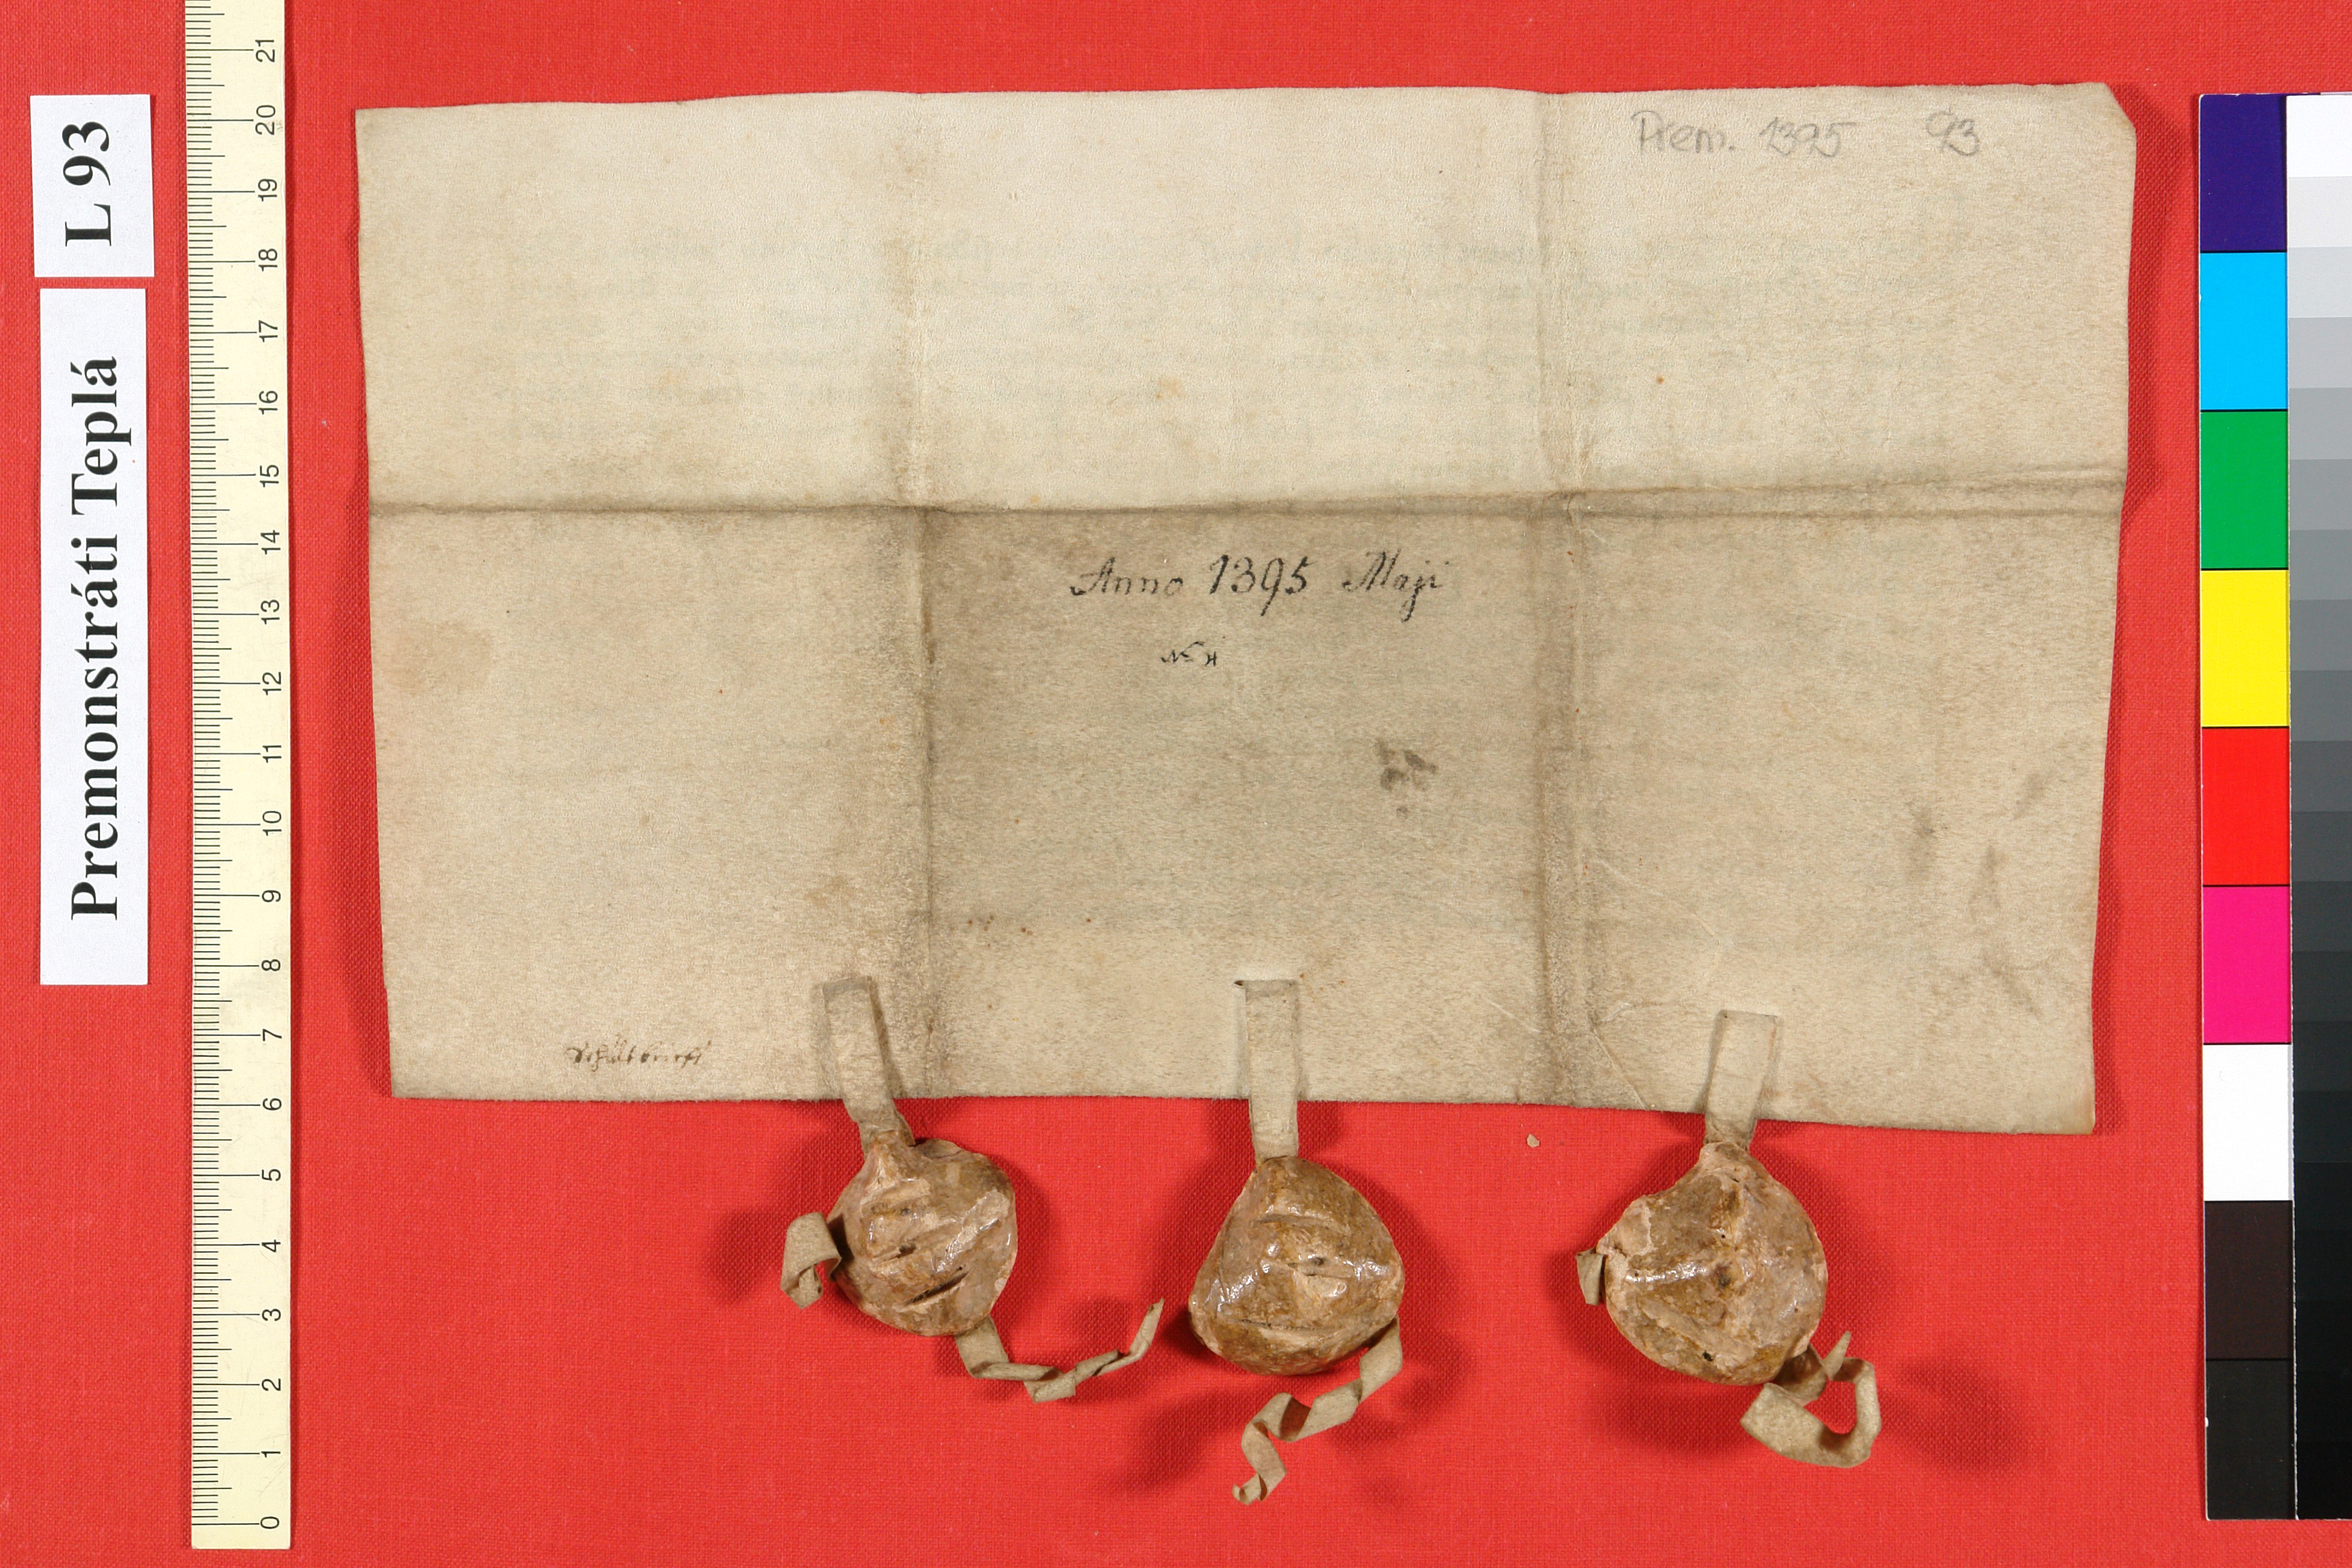 L 93
Premonstráti Teplá
21
20
19
18
17
16
15
14
13
12
11
10
9
8
7
6
5
4
3
2
1
0
Prem. 1395 93
Anno 1395 Maji